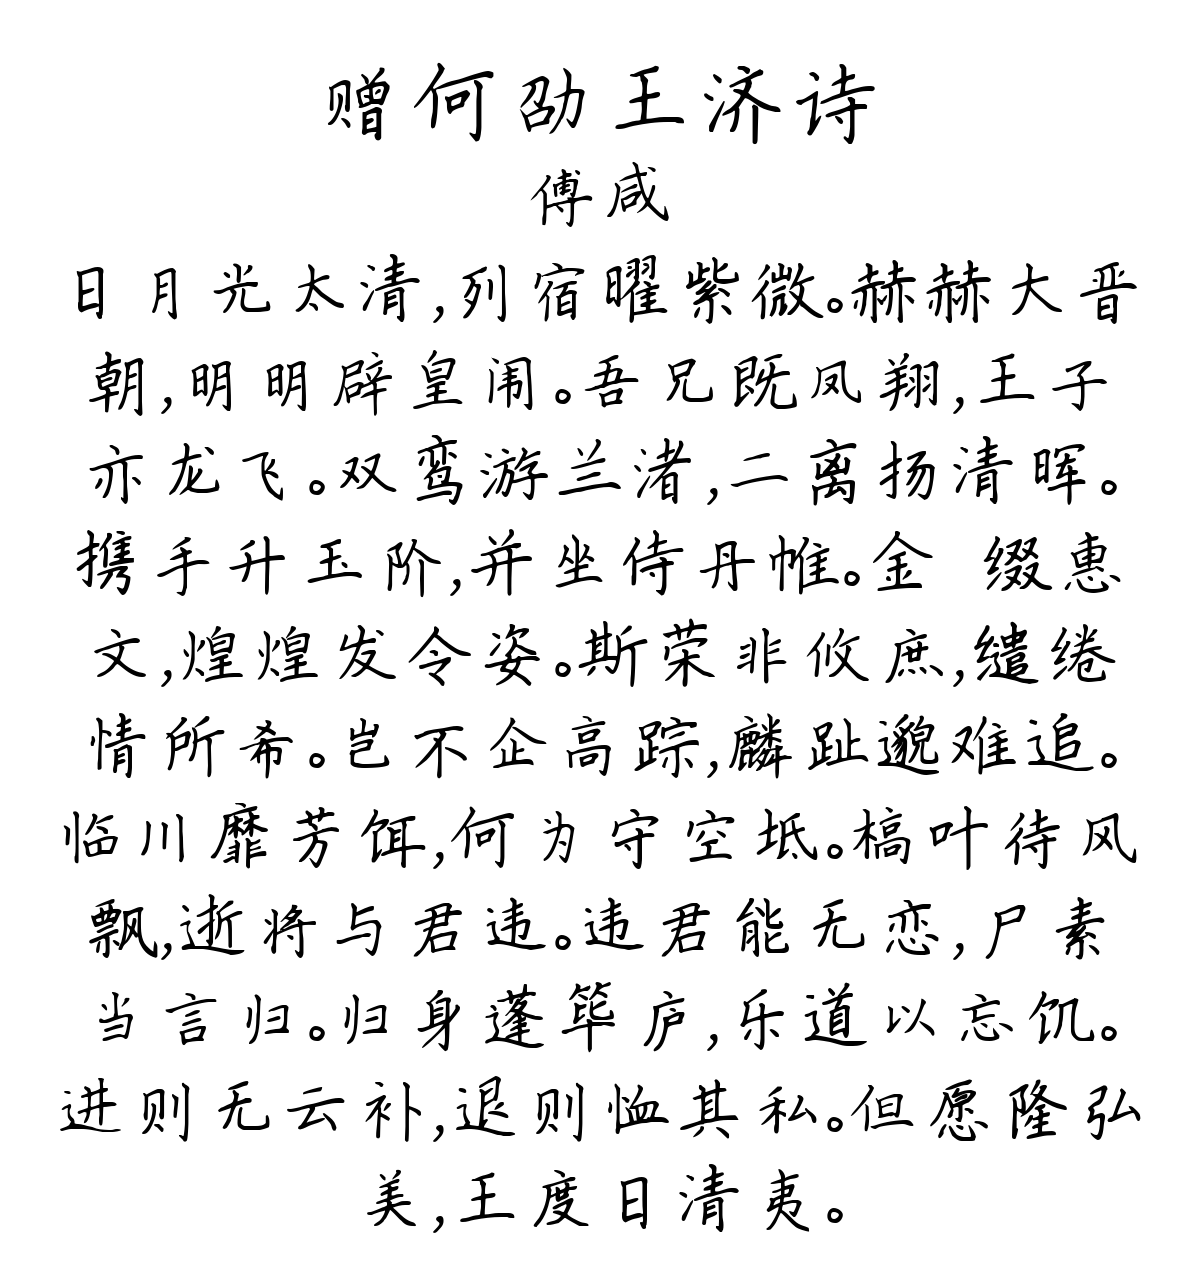 赠何劭王济诗
傅咸
日月光太清,列宿曜紫微。赫赫大晋
朝,明明辟皇闱。吾兄既凤翔,王子
亦龙飞。双鸾游兰渚,二离扬清晖。
携手升玉阶,并坐侍丹帷。金 缀惠
文,煌煌发令姿。斯荣非攸庶,缱绻
情所希。岂不企高踪,麟趾邈难追。
临川靡芳饵,何为守空坻。槁叶待风
飘,逝将与君违。违君能无恋,尸素
当言归。归身蓬筚庐,乐道以忘饥。
进则无云补,退则恤其私。但愿隆弘
美,王度日清夷。